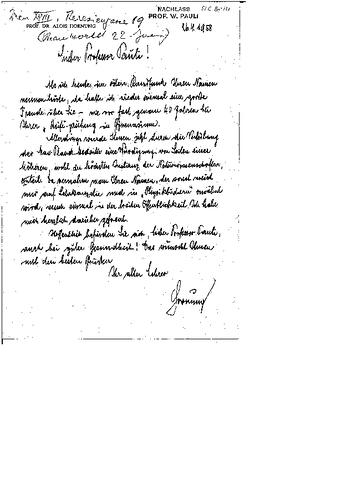 NACHLASS
PROF. W. PAULI
Wien XVIII, Theresiengasse 19
PROF. DR. ALOIS HORNUNG
(Beantwortet 22. Juni)
26.4.1958
Lieber Professor Pauli!
Als ich heute im österr. Rundfunk Ihren Namen
nennen hörte, da hatte ich wieder einmal eine große
Freude über Sie – wie vor fast genau 40 Jahren bei
Ihrer Reifeprüfung im Gymnasium.
Allerdings wurde Ihnen jetzt durch die Verleihung
der Max Planck Medaille eine Würdigung von Seiten einer
höheren, wohl der höchsten Instanz der Naturwissenschaften,
zuteil. So vernahm man Ihren Namen, der sonst meist
nur auf Lehrkanzeln und in "Physikbüchern" erwähnt
wird, auch einmal in der breiten Öffentlichkeit. Ich habe
mich herzlich darüber gefreut.
Hoffentlich befinden Sie sich, lieber Professor Pauli,
auch bei guter Gesundheit! Das wünscht Ihnen
mit den besten Grüßen
Ihr alter Lehrer
Hornung